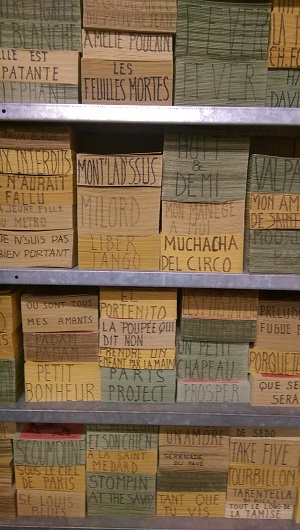 BLANCHE
ELLE EST
EPATANTE
ELEPHANT
AMELIE POULAIN
LES
FEUILLES MORTES
PLEYEL
CH.
DAVI
INTERDIS
N'AURAIT
FALLU
JEUNE FILLE
DU METRO
JE N'SUIS PAS
BIEN PORTANT
MONT'LAD'SSUS
MILORD
LIBER
TANGO
HUIT
&
DEMI
MON MANEGE
A MOI
MUCHACHA
DEL CIRCO
VALPA
MON AM
DE SAINT
OU SONT TOUS
MES AMANTS
PADAM
PADAM
PETIT
BONHEUR
EL
PORTENITO
LA POUPEE QUI
DIT NON
PRENDRE UN
ENFANT PAR LA MAIN
PARIS
PROJECT
UN PETIT
CHAPEAU
PROSPER
PRELUD
FUGUE
PARQUET
QUE SE
SERA
SECUMOUNE
SOUS LE CIEL
DE PARIS
ST LOUIS
BLUES
ET SON CHIEN
A LA SAINT
MEDARD
STOMPIN
AT THE SAVOY
UN AMORE
SERENADE
DU PAVE
TANT QUE
TU VIS
DE SEDO
TAKE FIVE
TOURBILLON
TARENTELLA
TOUT LE LONG DE
LA TAMISE